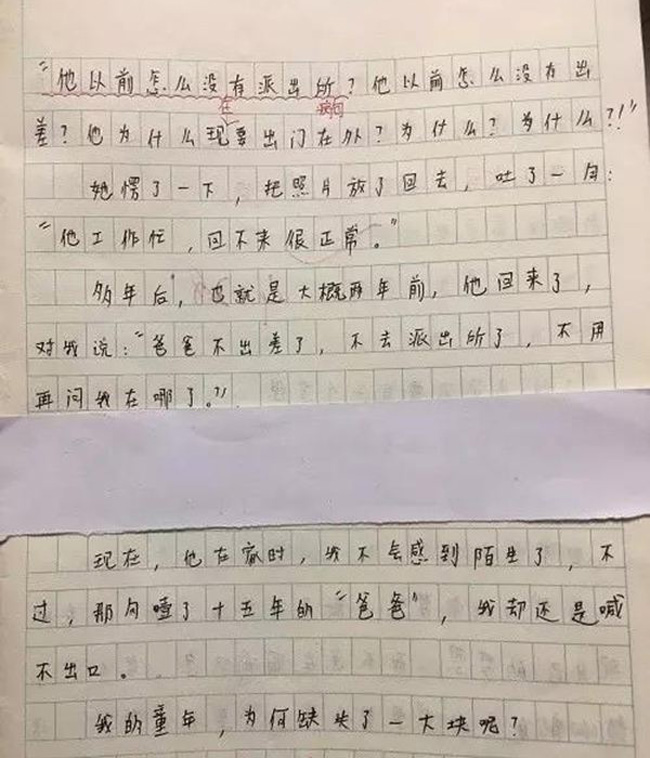 “他以前怎么没有派出所？他以前怎么没有出
在 病句
差？他为什么现要出门在外？为什么？为什么？！”
她愣了一下，把照片放了回去，吐了一句：
“他工作忙，回不来很正常。”
多年后，也就是大概两年前，他回来了，
对我说：“爸爸不出差了，不去派出所了，不用
再问我在哪了。”
现在，他在家时，我不会感到陌生了，不
过，那句哑了十五年的“爸爸”，我却还是喊
不出口。
我的童年，为何缺失了一大块呢？